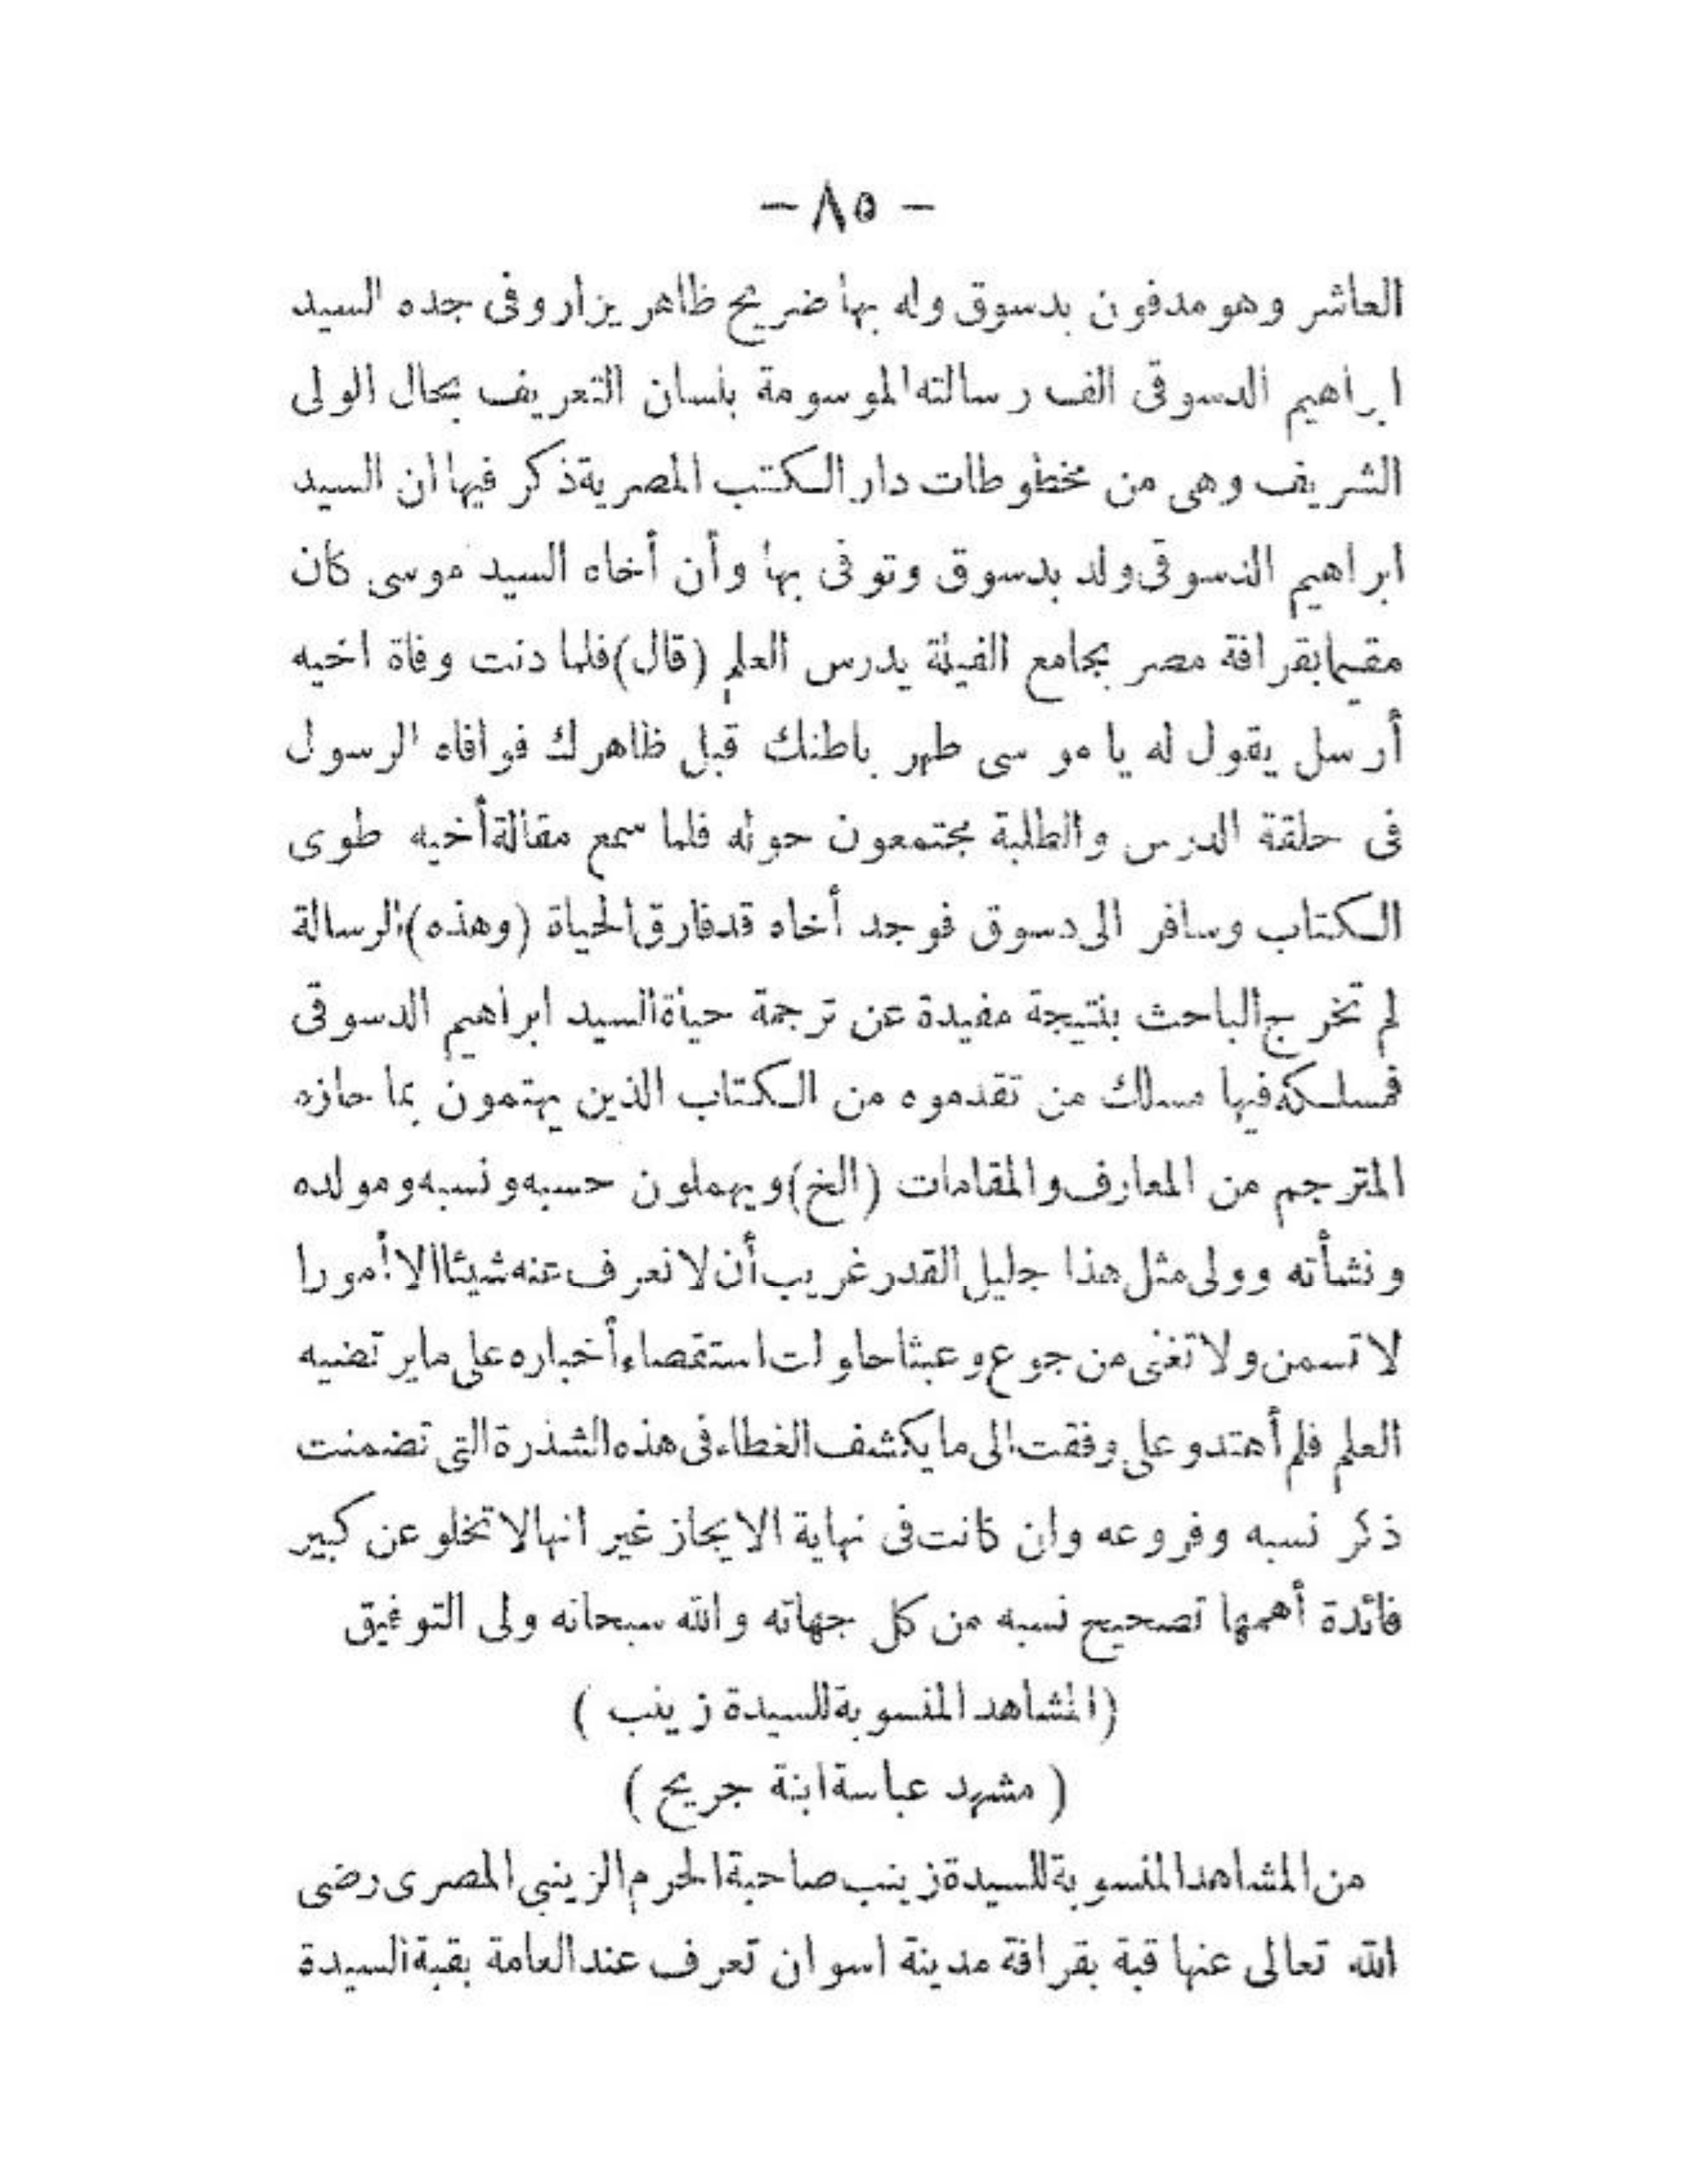 - ٨٥ -
العاشر وهو مدفون بدسوق وله بها ضريح ظاهر يزار وفى جده السيد
ابراهيم الدسوقى الف رسالته الموسومة بلسان التعريف بحال الولى
الشريف وهى من مخطوطات دار الكتب المصرية ذكر فيها ان السيد
ابراهيم الدسوقى ولد بدسوق وتوفى بها وأن أخاه السيد موسى كان
مقيما بقرافة مصر بجامع الفيلة يدرس العلم (قال) فلما دنت وفاة اخيه
أرسل يقول له يا موسى طهر باطنك قبل ظاهرك فوافاه الرسول
فى حلقة الدرس والطلبة مجتمعون حوله فلما سمع مقالة أخيه طوى
الكتاب وسافر الى دسوق فوجد أخاه قد فارق الحياة (وهذه) الرسالة
لم تخرج الباحث بنتيجة مفيدة عن ترجمة حياة السيد ابراهيم الدسوقى
فمسلكه فيها مسلك من تقدموه من الكتاب الذين يهتمون بما حازه
المترجم من المعارف والمقامات (الخ) ويهملون حسبه ونسبه ومولده
ونشأته وولى مثل هذا جليل القدر غريب أن لا نعرف عنه شيئا الا أمورا
لا تسمن ولا تغنى من جوع وعبثا حاولت استقصاء أخباره على ما يرتضيه
العلم فلم أهتد وعلى وفقت الى ما يكشف الغطاء فى هذه الشذرة التى تضمنت
ذكر نسبه وفروعه وان كانت فى نهاية الايجاز غير انها لا تخلو عن كبير
فائدة أهمها تصحيح نسبه من كل جهاته والله سبحانه ولى التوفيق
(المشاهد المنسوبة للسيدة زينب )
( مشهد عباسة ابنة جريح )
من المشاهد المنسوبة للسيدة زينب صاحبة الحرم الزينبى المصرى رضى
الله تعالى عنها قبة بقرافة مدينة اسوان تعرف عند العامة بقبة السيدة